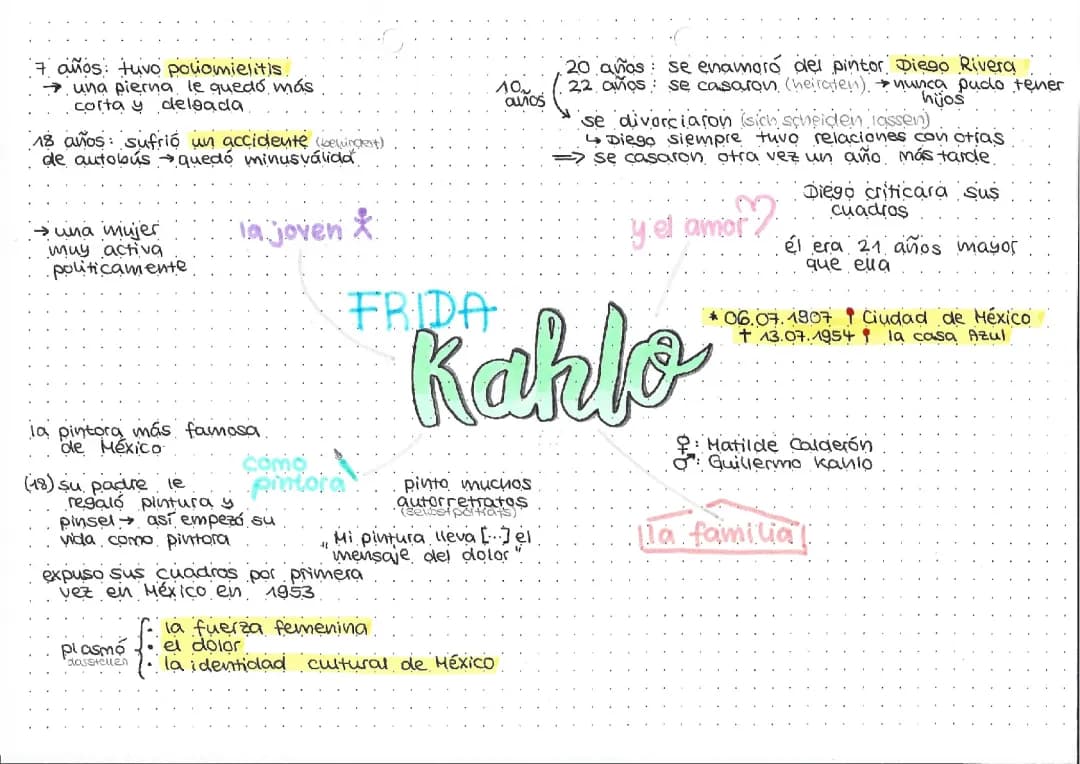 7 años: tuvo poliomielitis
→ una pierna le quedó más
corta y delgada
18 años: sufrió un accidente
de autobús → quedó minusválida
→ una mujer
muy activa
políticamente
la joven
10 años
20 años: se enamoró del pintor Diego Rivera
22 años: se casaron (heiraten) → nunca pudo tener
hijos
se divorciaron (sich scheiden lassen)
↳ Diego siempre tuvo relaciones con otras
⇒ se casaron otra vez un año más tarde
Diego criticara sus
cuadros
y el amor
él era 21 años mayor
que ella
FRIDA
Kahlo
* 06.07.1907 Ciudad de México
† 13.07.1954 la casa Azul
la pintora más famosa
de México
como
pintora
(18) su padre le
regaló pintura y
pinsel → así empezó su
vida como pintora
pinto muchos
autorretratos
(Selbstporträts)
„Mi pintura lleva [...] el
mensaje del dolor"
expuso sus cuadros por primera
vez en México en 1953
plasmó
darstellen
• la fuerza femenina
• el dolor
• la identidad cultural de México
♀: Matilde Calderón
♂: Guillermo Kahlo
la familia